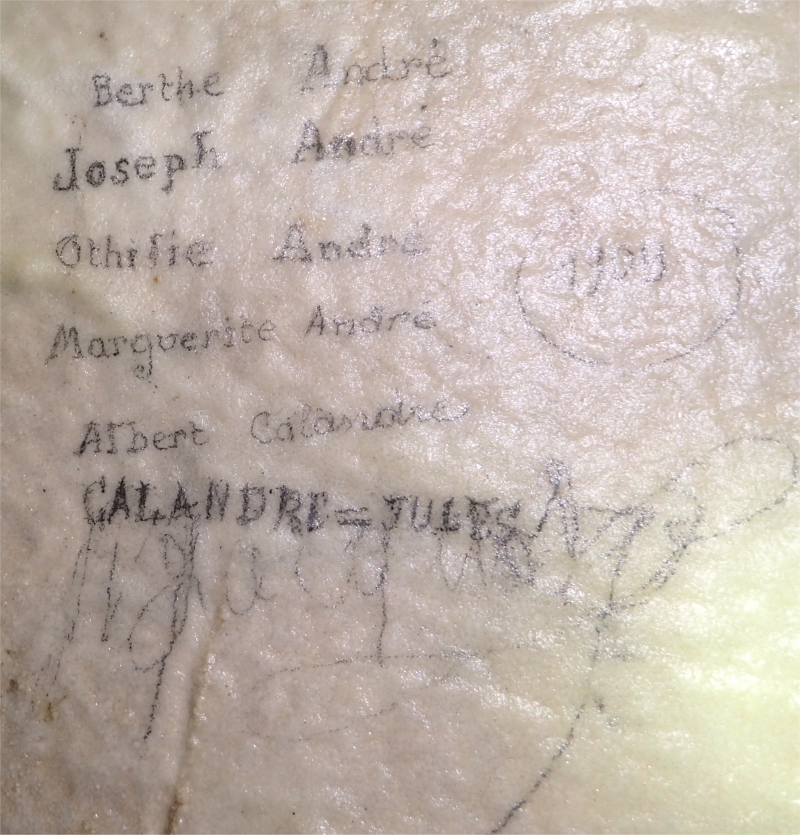 Berthe André
Joseph André
Othilie André
Marguerite André
Albert Calandre
CALANDRE=JULES